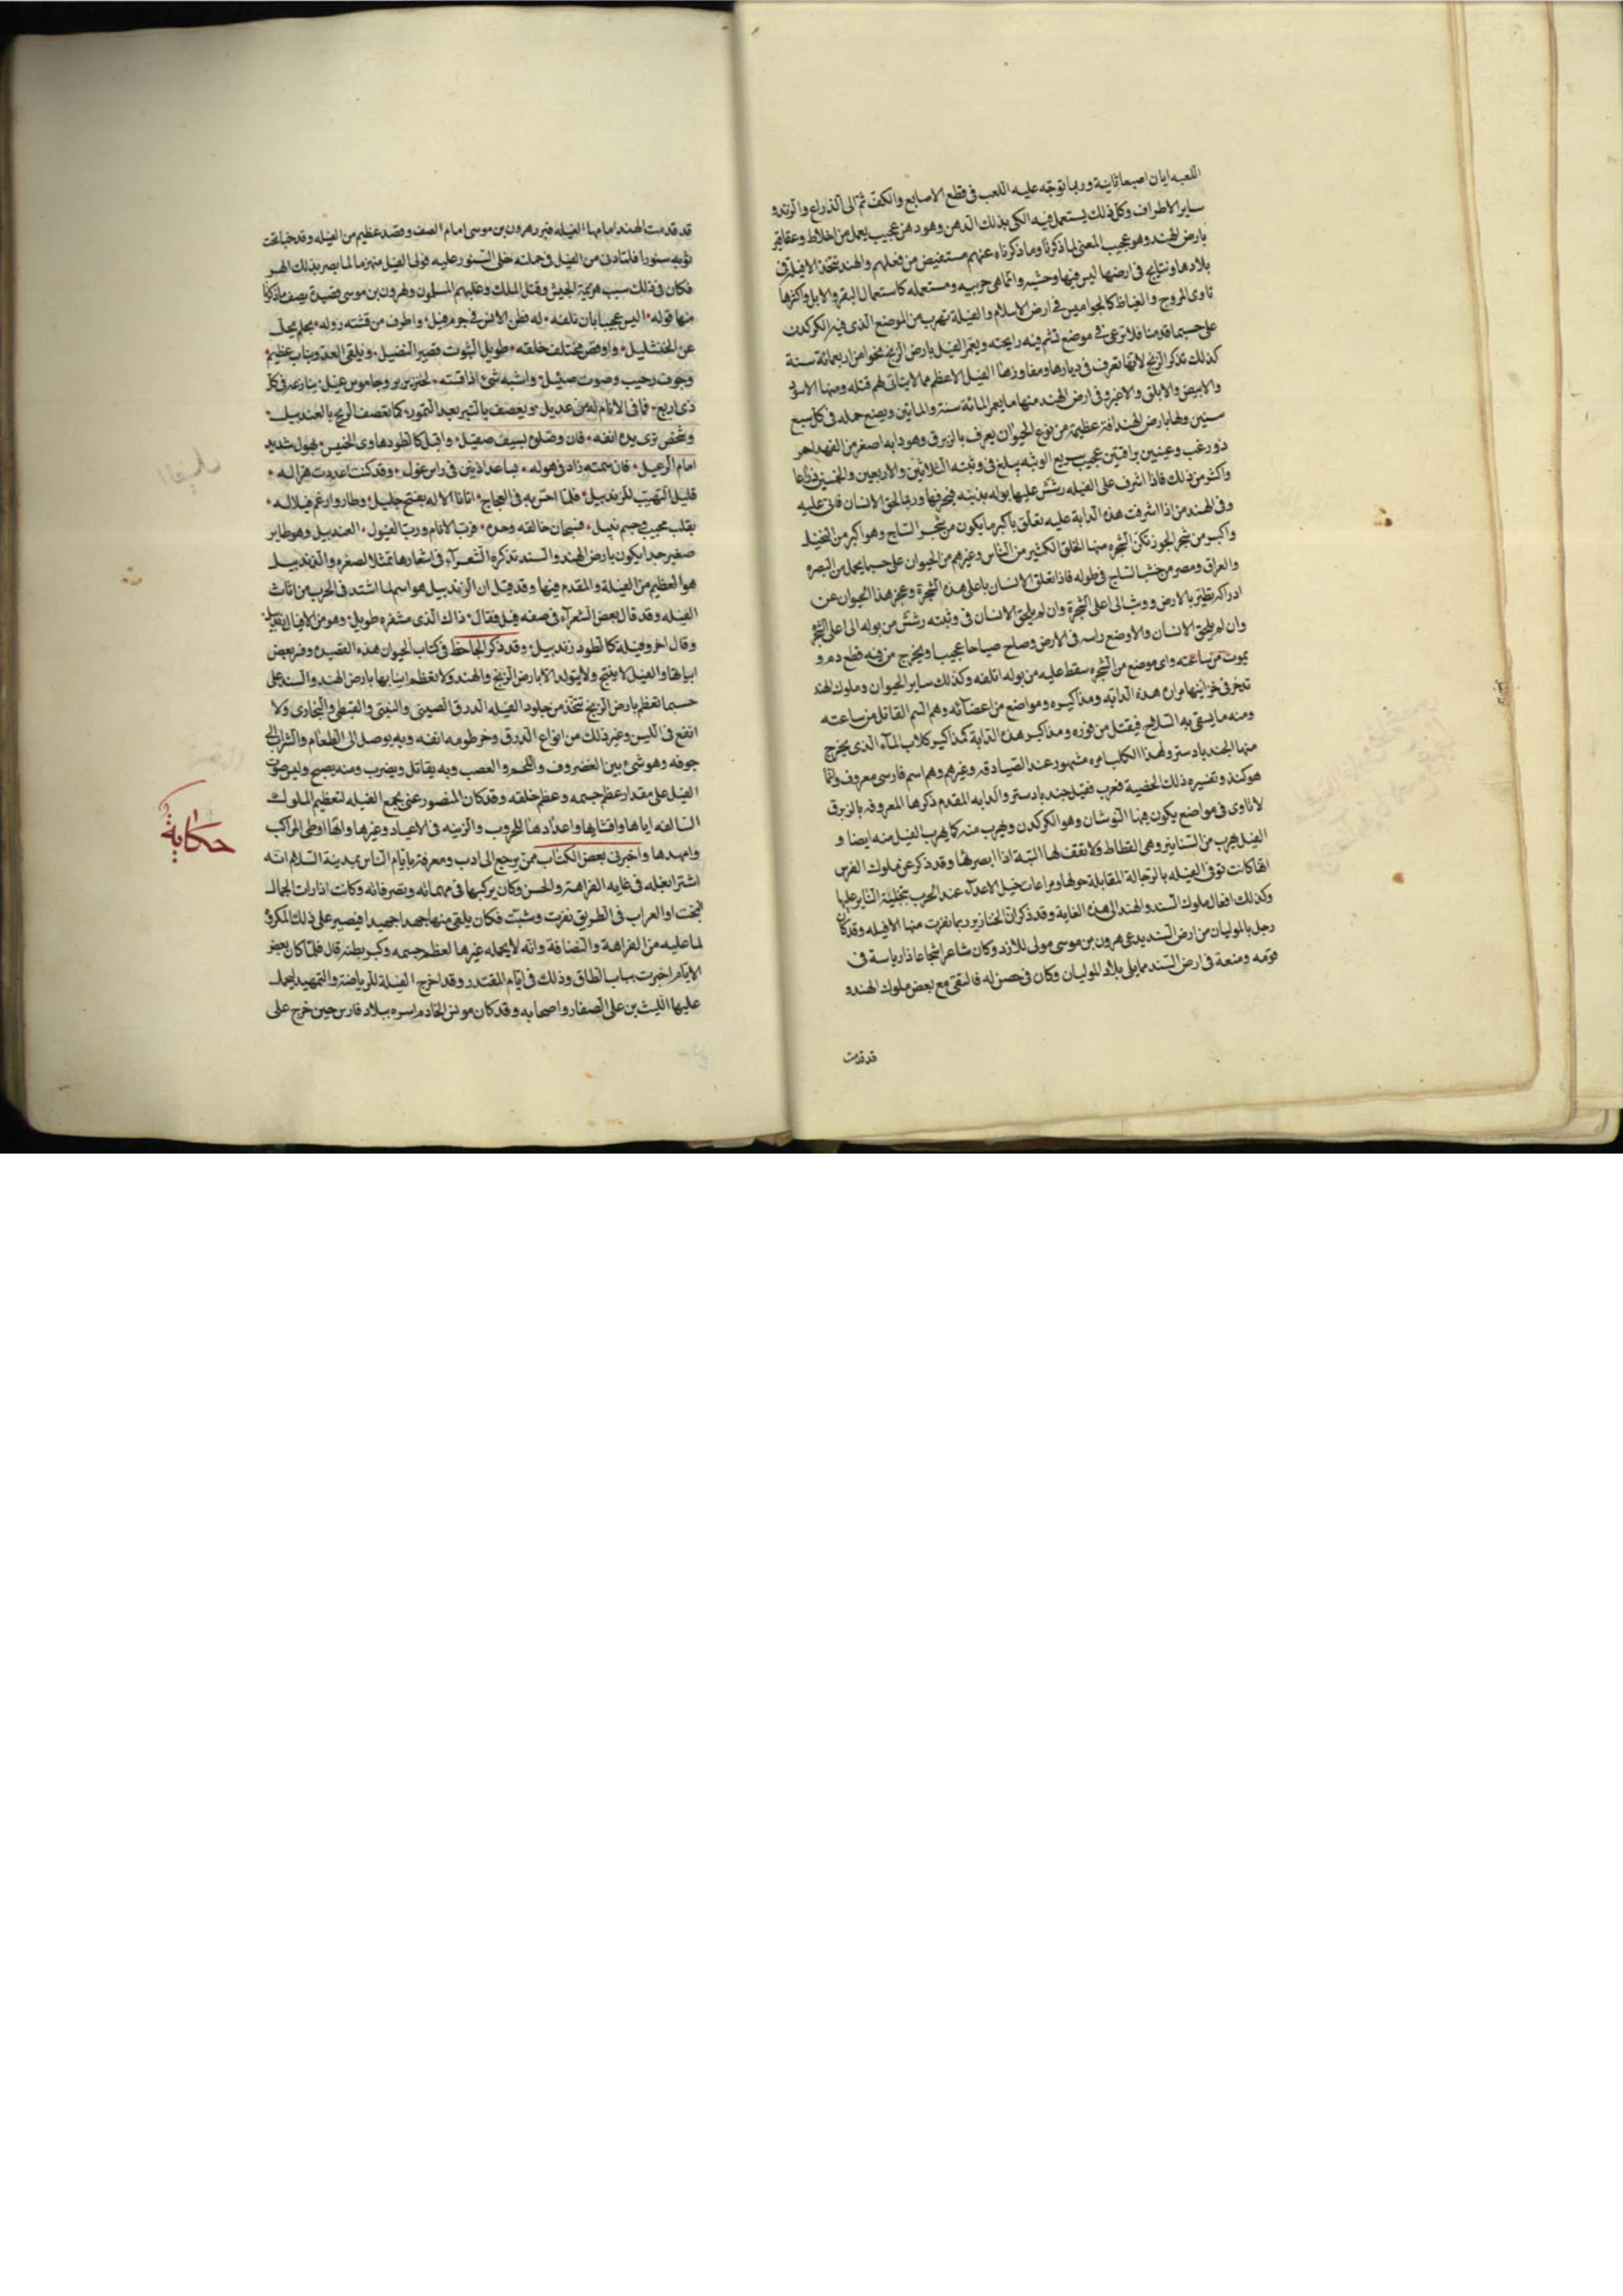 اللعبه ابان اصبعا ثانية وربما توجّه عليه اللعب فى قطع الاصابع والكف ثم الى الذراع والزند و
ساير الاطراف وكل ذلك يستعمل فيه الكى بذلك الدهن وهو دهن عجيب يعمل من اخلاط وعقاقير
بارض الهند وهو عجيب المعنى لما ذكرنا وما ذكرناه عنهم مستفيض من فعلهم والهند تتخذ الافيلة فى
بلادها ونتايج فى ارضها ليس فيها وحشيه وانما هى حربيه ومستعمله كاستعمال البقر والابل واكثرها
تاوى المروج والغياظ كالجواميس فى ارض الاسلام والفيلة تهرب من الموضع الذى فيه الكركدن
على حسبما قدمنا فلا ترعى فى موضع تشم فيه رايحته ويعمر الفيل بارض الزنج نحوا من اربعمائة سنة
كذلك تذكر الزنج لانها تعرف فى ديارها ومفاوزها الفيل الاعظم مما لا يتاتى لهم قتله ومنها الاسود
والابيض والابلق والاغبر وفى ارض الهند منها ما يعمر المائة سنة والمايتين ويضع حمله فى كل سبع
سنين ولها بارض الهند افة عظيمة من نوع الحيوان يعرف بالزبرق وهو دابه اصغر من الفهد احمر
ذو زغب وعينين براقتين عجيب سريع الوثبه يبلغ فى وثبته الثلاثين والاربعين والخمسين ذراعا
واكثر من ذلك فاذا اشرف على الفيله رشش عليها بوله بذنبه فيحرقها وربما لحق الانسان فاتى عليه
وفى الهند من اذا اشرفت هذه الدابة عليه تعلق باكبر ما يكون من شجر الساج وهو اكبر من النخل
واكبر من شجر الجوز تكن الشجره منها الخلق الكثير من الناس وغيرهم من الحيوان على حسبما يحمل من البصره
والعراق ومصر من خشب الساج فى طوله فاذا تعلق الانسان باعلى هذه الشجرة وعجز هذا الحيوان عن
ادراكه تطير بالارض ووثب الى اعلى الشجرة وان لم يلحق الانسان فى وثبته رشش من بوله الى اعلى الشجر
وان لم يلحق الانسان والا وضع راسه فى الارض وصاح صياحا عجيبا ويخرج من فيه قطع دم و
يموت من ساعته واى موضع من الشجره سقط عليه من بوله اتلفه وكذلك ساير الحيوان وملوك الهند
تدخر فى خزاينها مرارة هذه الدابه ومذاكيره ومواضع من اعضائه وهم السم القاتل من ساعته
ومنه ما يسقى به السلاح فيقتل من فوره ومذاكير هذه الدابة كمذاكير كلاب الماء الذى يخرج
منها الجند بادستر ولهذا الكلب امره مشهور عند الصيادقه وغيرهم وهم اسم فارسى معروف وانما
هو كند وتفسيره ذلك الخصية فعرب فقيل جند بادستر والدابه المقدم ذكرها المعروفه بالزبرق
لا تاوى فى مواضع يكون فيها النوشان وهو الكركدن ويهرب منه كما يهرب الفيل منه ايضا و
الفيل يهرب من السنانير وهى القطاط ولا تقف لها البتة اذا ابصرتها وقد ذكر عن ملوك الفرس
انها كانت توقى الفيله بالرجالة المقابلة حولها ومراعات خيل الاعداء عند الحرب بتخلية السنانير عليها
وكذلك افعال ملوك السند والهند الى هذه الغاية وقد ذكر ان الخنازير ربما نفرت منها الافيله وقد كان
رجل بالموليان من ارض السند يدعى هرون بن موسى مولى للازد وكان شاعرا شجاعا ذا رياسة فى
قومه ومنعة فى ارض السند مما يلى بلاد الموليان وكان فى حصن له فالتقى مع بعض ملوك الهند و
قد قدمت
قد قدمت الهند امامها الفيله فبرز هرون بن موسى امام الصف وقصد عظيم من الفيله وقد خبا تحت
ثوبه سنورا فلما دنى من الفيل فى حملته خلى السنور عليه فولى الفيل منهزما لما بصر بذلك الهر
فكان فى ذلك سبب هزيمة الجيش وقتل الملك وغلبهم المسلمون ولهرون بن موسى قصيدة يصف ما ذكرنا
منها قوله اليس عجيبا بان تلفه له فطن الانس فى جرم فيل واظرف من قشته زوله بحلم يجل
عن الخنشليل واوقص مختلف خلقه طويل النيوت قصير النصيل ويلقى العدو بناب عظيم
وجوف رحيب وصوت صئيل واشبه شئ اذا قسته لخنزير بر وجاموس غيل ينازعه فى كل
ذى اربع فما فى الانام له من عديل ويعصف بالنبر بعد النمور كما تعصف الريح بالعندبيل
وشخص ترى يده انفه فان وصلوه بسيف صقيل واقبل كالطود هاوى الخميس بهول شديد
امام الرعيل فان شمته زاد فى هوله بباعد اذنين فى راس غول وقد كنت اعددت هرا له
قليل التهيب للزندبيل فلما احس به فى العجاج اتانا الاله بفتح جليل وطار وارغم فيلاله
بقلب مجيب وجسم نبيل فسبحان خالقه وحده فرب الانام ورب الفيول العندبيل وهو طاير
صغير جدا يكون بارض الهند والسند تذكره الشعراء فى اشعارها تمثلا لصغره والزندبيل
هو العظيم من الفيلة والمقدم فيها وقد قيل ان الزندبيل هو اسم لما اشتد فى الحرب من اناث
الفيله وقد قال بعض الشعراء فى صفه فيل فقال ذاك الذى مشفره طويل وهو من الافيال زندبيل
وقال اخر وفيله كالطود زندبيل وقد ذكر الجاحظ فى كتاب الحيوان هذه القصيده وفسر بعض
ابياتها والفيل لا ينتج ولا يتولد الا بارض الزنج والهند ولا تعظم انيابها بارض الهند والسند على
حسبما تعظم بارض الزنج تتخذ من جلود الفيله الدرق الصينى والتبتى والقبطى والبخارى ولا
انفع فى اللبس وغير ذلك من انواع الدرق وخرطومه انفه وبه يوصل الى الطعام والشراب الى
جوفه وهو شئ بين الغضروف واللحم والعصب وبه يقاتل ويضرب ومنه يصيح وليس صوت
الفيل على مقدار عظم جسمه وعظم خلقه وقد كان المنصور عنى بجمع الفيله لتعظيم الملوك
السالفه اياها واقتنايها واعدادها للحروب والزينه فى الاعياد وغيرها وانها اوطى المراكب
وامهدها واخبرنى بعض الكتاب ممن يرجع الى ادب ومعرفة بايام الناس بمدينة السلام انه
حكاية
اشترا بغله فى غايه الفراهة والحسن وكان يركبها فى مهماته وتصرفاته وكانت اذا رات الجمال
البخت او العراب فى الطريق نفرت وشبت فكان يلقى منها جهدا جهيدا فيصبر على ذلك المكروه
لما عليه من الفراهة والنضافة وانه لا يحمله غيرها لعظم جسمه وكبر بطنه قال فلما كان بعض
الايام اخبرت بباب الطاق وذلك فى ايام المقتدر وقد اخرج الفيلة للرياضة والتمهيد لحمل
عليها الليث بن على الصفار واصحابه وقد كان مونس الخادم اسره ببلاد فارس حين خرج على